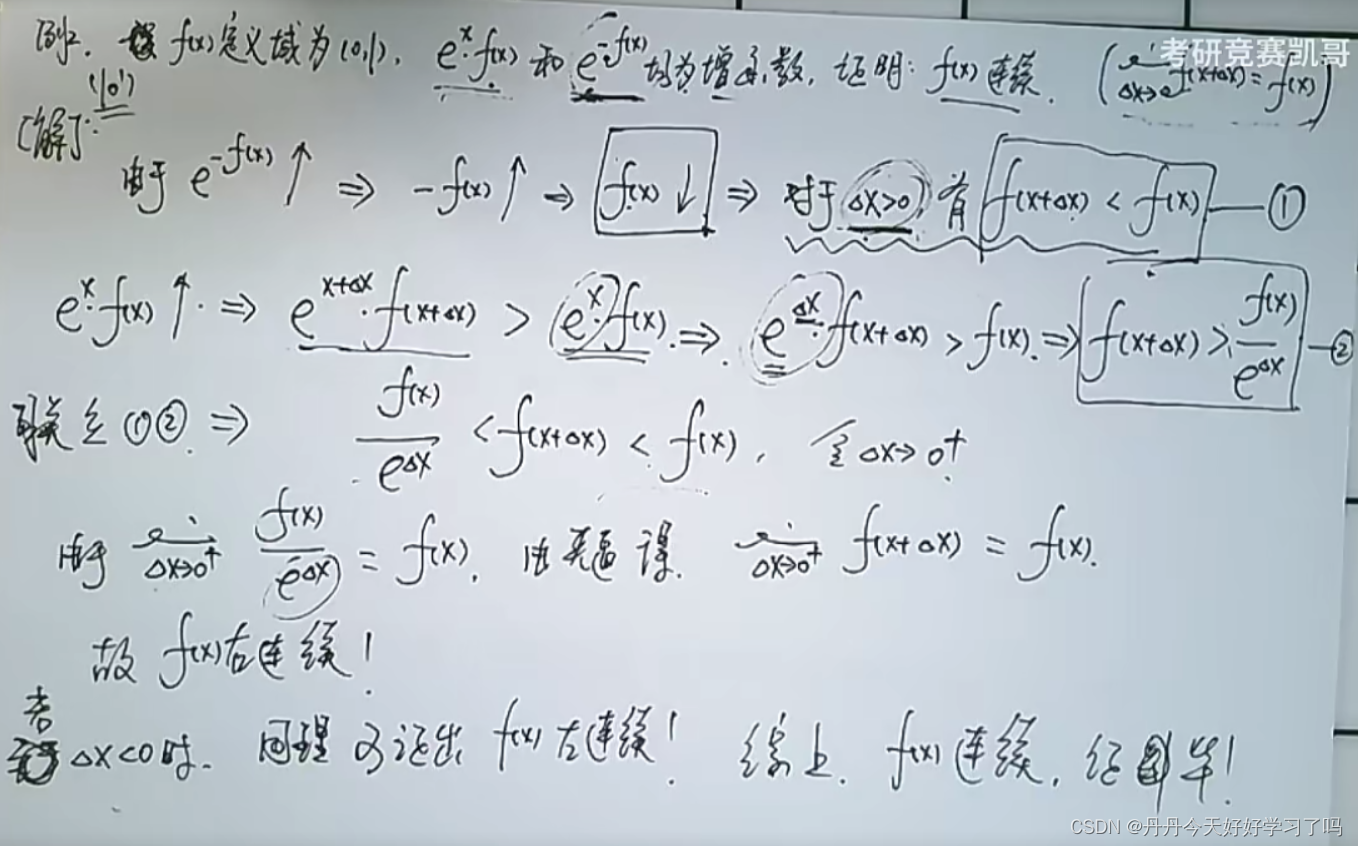 例2. 设 f(x) 定义域为(0,1), e^x·f(x) 和 e^{-f(x)} 均为增函数, 证明: f(x) 连续. (lim_{Δx→0} f(x+Δx) = f(x))
考研竞赛凯哥
[解]:
由于 e^{-f(x)} ↑ ⇒ -f(x) ↑ ⇒ f(x) ↓ ⇒ 对于 Δx>0, 有 f(x+Δx) < f(x) —— ①
e^x·f(x) ↑ ⇒ e^{x+Δx}·f(x+Δx) > e^x·f(x) ⇒ e^{Δx}·f(x+Δx) > f(x) ⇒ f(x+Δx) > f(x)/e^{Δx} —②
联立①② ⇒ f(x)/e^{Δx} < f(x+Δx) < f(x), 令 Δx→0⁺
由于 lim_{Δx→0⁺} f(x)/e^{Δx} = f(x), 由夹逼 lim_{Δx→0⁺} f(x+Δx) = f(x).
故 f(x)右连续!
若 Δx<0时. 同理可证出 f(x)左连续! 综上. f(x)连续, 证毕!
CSDN @丹丹今天好好学习了吗